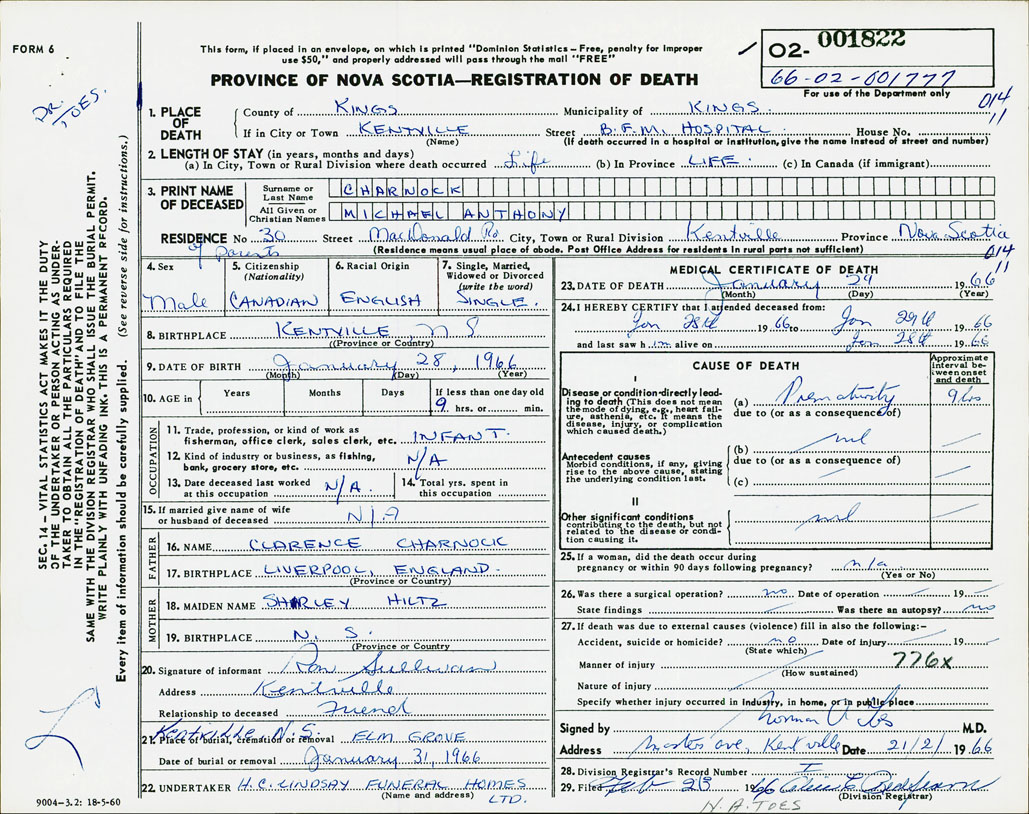 FORM 6
This form, if placed in an envelope, on which is printed "Dominion Statistics—Free, penalty for improper
use $50," and properly addressed will pass through the mail "FREE"
PROVINCE OF NOVA SCOTIA—REGISTRATION OF DEATH
02- 001822
66-02-001777
For use of the Department only
014
11
DR. TOES.
SEC. 14— VITAL STATISTICS ACT MAKES IT THE DUTY
OF THE UNDERTAKER OR PERSON ACTING AS UNDER-
TAKER TO OBTAIN ALL THE PARTICULARS REQUIRED
IN THE "REGISTRATION OF DEATH" AND TO FILE THE
SAME WITH THE DIVISION REGISTRAR WHO SHALL ISSUE THE BURIAL PERMIT.
WRITE PLAINLY WITH UNFADING INK. THIS IS A PERMANENT RECORD.
Every item of information should be carefully supplied. (See reverse side for instructions.)
1. PLACE OF DEATH
County of KINGS Municipality of KINGS.
If in City or Town KENTVILLE Street B.F.M. HOSPITAL. House No.
(Name) (If death occurred in a hospital or institution, give the name instead of street and number)
2. LENGTH OF STAY (in years, months and days)
(a) In City, Town or Rural Division where death occurred Life (b) In Province LIFE. (c) In Canada (if immigrant)
3. PRINT NAME OF DECEASED
Surname or Last Name CHARNOCK
All Given or Christian Names MICHAEL ANTHONY
RESIDENCE No 30 Street MacDonald Rd. City, Town or Rural Division Kentville Province Nova Scotia
of parents (Residence means usual place of abode. Post Office Address for residents in rural parts not sufficient)
014
11
4. Sex Male
5. Citizenship (Nationality) CANADIAN
6. Racial Origin ENGLISH
7. Single, Married, Widowed or Divorced (write the word) SINGLE.
8. BIRTHPLACE KENTVILLE N S
(Province or Country)
9. DATE OF BIRTH January 28, 1966
(Month) (Day) (Year)
10. AGE in Years Months Days If less than one day old
9 hrs. or min.
OCCUPATION
11. Trade, profession, or kind of work as
fisherman, office clerk, sales clerk, etc. INFANT.
12. Kind of industry or business, as fishing,
bank, grocery store, etc. N/A
13. Date deceased last worked
at this occupation N/A.
14. Total yrs. spent in
this occupation
15. If married give name of wife
or husband of deceased N/A
FATHER
16. NAME CLARENCE CHARNOCK
17. BIRTHPLACE LIVERPOOL, ENGLAND.
(Province or Country)
MOTHER
18. MAIDEN NAME SHIRLEY HILTZ
19. BIRTHPLACE N. S.
(Province or Country)
20. Signature of informant Ron Sullivan
Address Kentville
Relationship to deceased Friend
Kentville N.S.
21. Place of burial, cremation or removal ELM GROVE
Date of burial or removal January 31, 1966
22. UNDERTAKER H.C. LINDSAY FUNERAL HOMES LTD.
(Name and address)
9004—3.2: 18-5-60
MEDICAL CERTIFICATE OF DEATH
23. DATE OF DEATH January 29 1966
(Month) (Day) (Year)
24. I HEREBY CERTIFY that I attended deceased from:
Jan 28th 1966 to Jan 29th 1966
and last saw him alive on Jan 28th 1966
CAUSE OF DEATH
Approximate interval between onset and death
I
Disease or condition directly lead-
ing to death (This does not mean
the mode of dying, e.g., heart fail-
ure, asthenia, etc. It means the
disease, injury, or complication
which caused death.)
(a) Prematurity 9 hrs
due to (or as a consequence of)
Antecedent causes
Morbid conditions, if any, giving
rise to the above cause, stating
the underlying condition last.
(b) nil
due to (or as a consequence of)
(c)
II
Other significant conditions
contributing to the death, but not
related to the disease or condi-
tion causing it.
nil
25. If a woman, did the death occur during
pregnancy or within 90 days following pregnancy? n/a
(Yes or No)
26. Was there a surgical operation? no Date of operation 19
State findings Was there an autopsy? no
27. If death was due to external causes (violence) fill in also the following:—
Accident, suicide or homicide? no Date of injury 19
(State which)
Manner of injury 776x
(How sustained)
Nature of injury
Specify whether injury occurred in industry, in home, or in public place
Signed by Norman M.D.
Address Masters ave, Kentville Date 21/2/ 1966
28. Division Registrar's Record Number I
29. Filed Feb 23 1966
(Division Registrar)
N. A. TOES